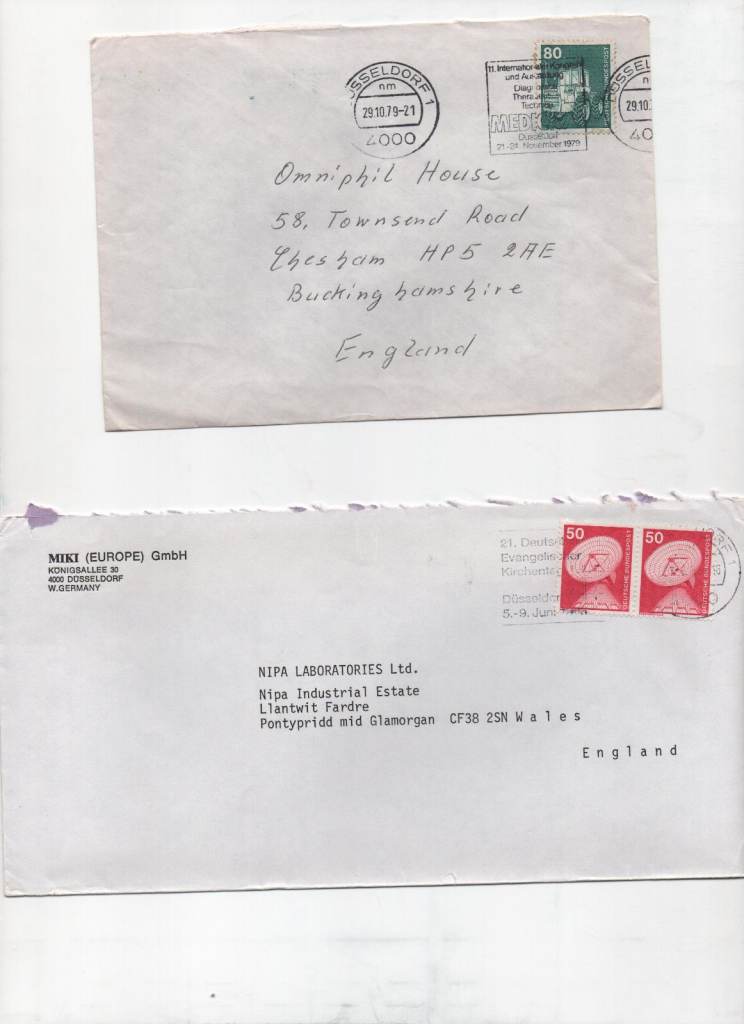 DÜSSELDORF 1
nm
29.10.79-21
4000
11. Internationaler Kongreß
und Ausstellung
Technik
Düsseldorf
21.-24. November 1979
80
BUNDESPOST
SSELD
nm
29.10.
40
Omniphil House
58, Townsend Road
Chesham HP5 2AE
Buckinghamshire
England
MIKI (EUROPE) GmbH
KÖNIGSALLEE 30
4000 DÜSSELDORF
W.GERMANY
21. Deutsc
Evangelischer
Kirchentag
Düsseldor
5.-9. Juni
50
DEUTSCHE BUNDESPOST
50
DEUTSCHE BUNDESPOST
ORF 1
NIPA LABORATORIES Ltd.
Nipa Industrial Estate
Llantwit Fardre
Pontypridd mid Glamorgan CF38 2SN W a l e s
E n g l a n d